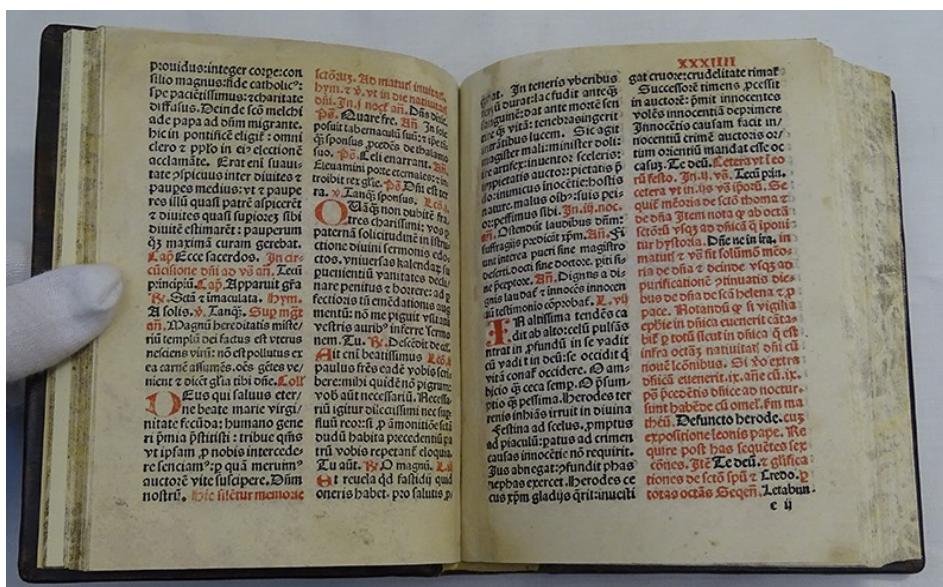 prouidus:integer corpe:con
silio magnus:fide catholic⁹:
spe paciẽtissimus:ꝛcharitate
diffusus. Deinde scõ melchi
ade papa ad dñm migrante.
hic in pontificẽ eligit᷑ omni
clero ⁊ pplo in ei⁹ electionẽ
acclamãte. Erat eni suaui-
tate ꝯspicuus inter diuites ⁊
paupes medius: vt ⁊ paupe
res illũ quasi patrẽ aspicerẽt
⁊ diuites quasi supiorez sibi
diuitẽ estimarẽt: pauperum
qꝫ maximã curam gerebat.
Cap̃ Ecce sacerdos. In cir-
cũcisione dñi ad vs̃ añ. Tecũ
principiũ. Cap̃. Apparuit gr̃a
℟. Sctã ⁊ imaculata. Hym.
A solis. ℣. Tanqꝫ. Sup mg̃t
añ. Magnũ hereditatis miste-
riũ templũ dei factus est vterus
nesciens virũ: nõ est pollutus ex
ea carnẽ assumẽs. oẽs gẽtes ve-
nient ⁊ dicẽt gl̃ia tibi dñe. Coll᷑
DEus qui saluus eter/
ne beate marie virgi/
nitate fecũda: humano gene
ri p̃mia p̃stitisti: tribue qm̃s
vt ipsam ꝓ nobis intercede-
re senciam⁹: ꝑ quã meruim⁹
auctorẽ vite suscipere. Dñm
nostrũ. Hic silẽtur memorie
sctõruꝫ. Ad matut᷑ inuitat᷑.
hym. ⁊ ℣. vt in die natiuitat᷑
dñi. In .j. noct᷑ añ. Dñs dixit.
Ps̃. Quare fre. Añ. In sole
posuit tabernaculũ suũ: ⁊ ip̃e tã
qꝫ sponsus ꝓcedẽs de thalamo
suo. Ps̃. Celi enarrant. Añ.
Eleuamini porte eternales: ⁊ in-
troibit rex gl̃ie. Ps̃. Dñi est ter
ra. ℣. Tanqꝫ sponsus.
QVãqꝫ non dubitẽ fra
tres charissimi: vos ꝓ
paternã solicitudinẽ in istru
ctione diuini sermonis edo-
ctos. vniuersas kalendaꝫ su
peruenientiũ vanitates decli/
nare penitus ⁊ horrere: ad ꝑ
fectionis tñ emẽdationis aug
mentũ: nõ me piguit vsitatũ
vestris aurib⁹ inferre sermo
nem. Tu. ℟. Descẽdit de cel᷑.
Ait eni beatissimus
paulus fr̃es eadẽ vobis scri-
bere: mihi quidẽ nõ pigrum:
vob̃ aũt necessariũ. Necessa-
riũ igitur dilectissimi nec sup-
fluũ reor: si ꝓ amonitiõe scitã
dudũ habita precedentiũ pa
trũ vobis repetant᷑ eloquia.
Tu aũt. ℟. O magnũ.
Et reuela qd̃ fastidij quid
oneris habet. pro salutis ꝓ
XXXIIII
In teneris vberibus
durat: lac fudit anteqꝫ
sanguinẽ: dat ante mortẽ sen
vitã: tenebrasingerit
intrãtibus lucem. Sic agit
magister mali: minister doli:
ire artifex: inuentor sceleris:
impietatis auctor: pietatis p̃
do: inimicus inocẽtie: hostis
nature. malus oĩb⁹: suis pei
or: peffimus sibi. In .iij. noc.
añ. Ostendũt laudibus dñm:
suffragijs p̃dicãt xp̃m. Añ. Fi
unt interea pueri sine magistro
deserti. docti sine doctore. ꝑiti si-
ne p̃ceptore. Añ. Dignus a di-
gnis laudat᷑ ⁊ innocẽs innocen
tiũ testimonio cõprobat᷑. L. vij
IN altissima tendẽs ca
dit ab alto: celũ pulsãs
intrat in ꝓfundũ in se vadit
cũ vadit in deũ: se occidit q̃
vitã conat᷑ occidere. O am-
bicio q̃ ceca semp. O p̃sum-
ptio q̃ pessima. Herodes ter
renis inhiãs irruit in diuina
Festina ad scelus. ꝓmptus
ad piaculũ: patus ad crimen
causas innocẽtie nõ requirit.
Ius abnegat: ꝓfundit phas
nephas exercet. Herodes ce
cus xp̃m gladijs q̃rit: inuesti
gat cruore: crudelitate rimat᷑
Successorẽ timens ꝓcessit
in auctorẽ: p̃mit innocentes
volẽs innocentiã deprimere
Innocẽtis causam facit in/
nocentiũ crimẽ auctoris or/
tum orientiũ mandat esse oc
casuꝫ. Te deũ. Cetera vt ĩ eo
rũ festo. In .ij. vs̃. Tecũ prin.
cetera vt in .ijs vs̃ ip̃orũ. Se
quit᷑ mẽoria de sctõ thoma ⁊
de dñã Item nota ꝙ ab octã
sctõrũ vsqꝫ ad dñicã q̃ iponi
tur hystoria. Dñe ne in ira. in
matut᷑ ⁊ vs̃ fit solũmõ mẽo-
ria de dñã ⁊ deinde vsqꝫ ad
purificationẽ ꝯtinuatis die-
bus de dñã de sctã helena ⁊ ꝓ
pace. Notandũ ꝙ si vigilia
epbie in dñica euenerit cãta-
bit᷑ ꝑ totũ sicut in dñica q̃ est
infra octãs natiuitat᷑ dñi cũ
nouẽ lcõnibus. Si ꝟo extra
dñicã euenerit .ix. añe cũ .ix.
ps̃ p̃cedẽtis dñice ad noctur.
sunt habẽde cũ omel᷑. fm ma
theũ. Defuncto herode. cuꝫ
expositione leonis pape. Re
quire post has sequẽtes sex
cõnes. Itẽ Te deũ. ⁊ gl̃ifica
tiones de sctõ sp̃ũ ⁊ Credo. ꝑ
totas octãs Sequeñ. Letabun.
e ij